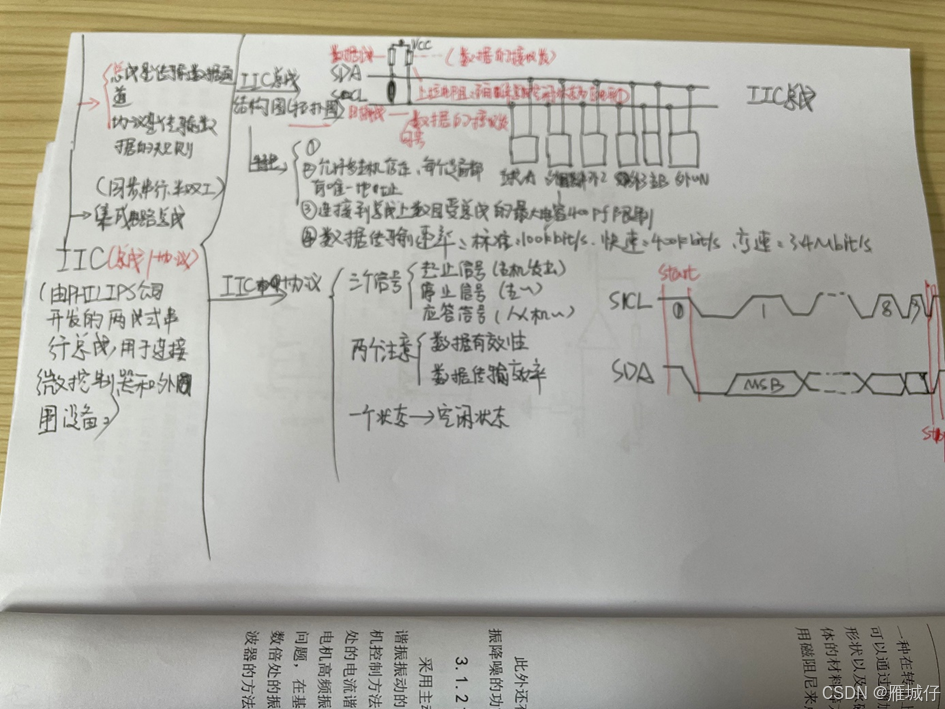 总线是传输数据通
道
协议是传输数
据的规则
(同步串行,半双工)
集成电路总线
IIC(总线/协议)
(由PHILIPS公司
开发的两线式串
行总线,用于连接
微控制器和外围
围设备。
IIC总线
结构图(拓扑图)
数据线
VCC
(数据的接收发)
SDA
SCL
时钟线
数据的接收发
IIC总线
①
②允许多主机存在,每个设备都
有唯一地址
③连接到总线上数目受总线的最大电容400pf限制
④数据传输速率:标准:100kbit/s.快速=400kbit/s,高速=3.4Mbit/s
IIC协议
三个信号
起止信号(主机发出)
停止信号(主~)
应答信号(从机~)
两个注意
数据有效性
数据传输效率
一个状态→空闲状态
start
SCL
1
8
9
SDA
MSB
一种在转
可以通过
形状以及
体的材料
用磁阻尼来
此外还
振降噪的功
3.1.2
采用主动
谐振振动的
机控制方法
处的电流谐
电机高频振
问题,在基
数倍处的振
波器的方法
CSDN @雁城仔